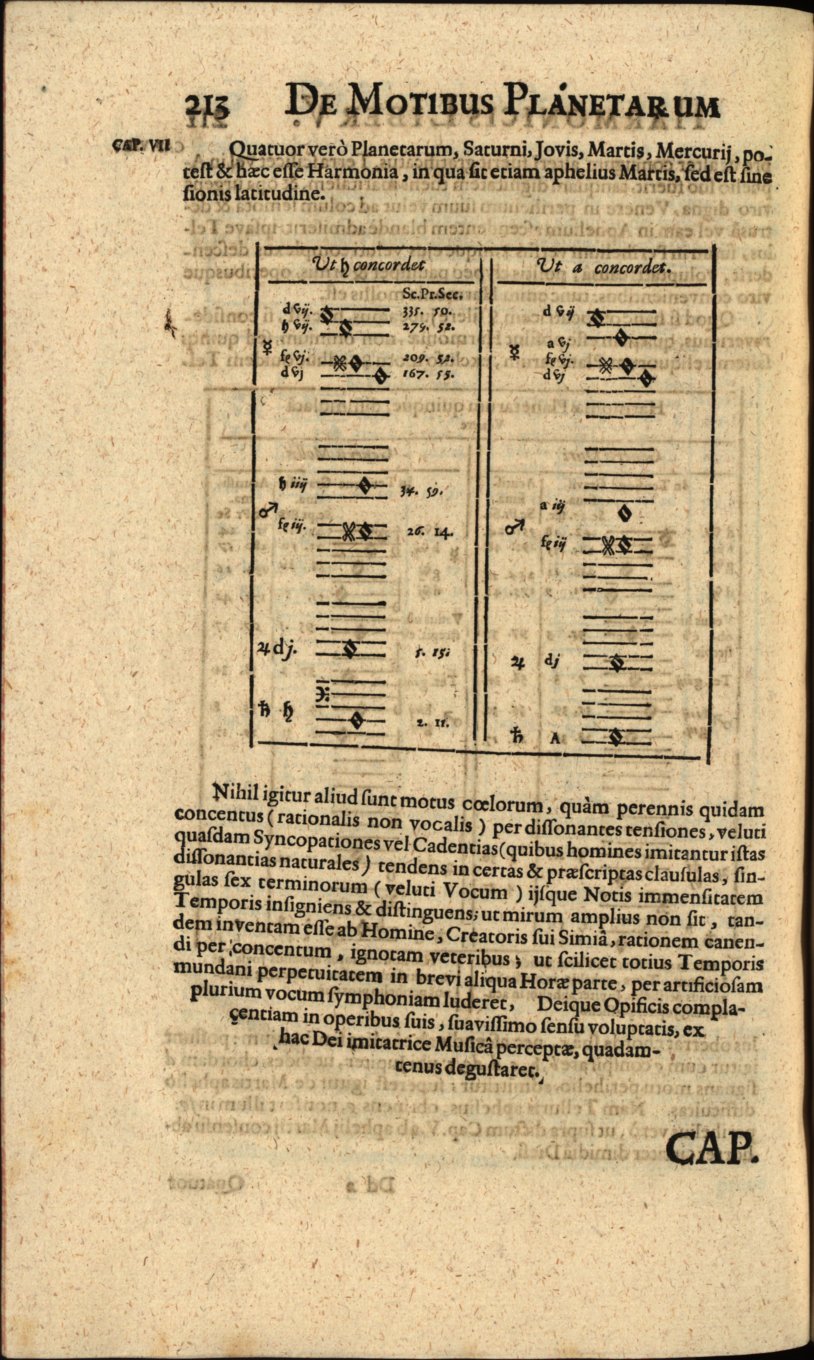 213 DE MOTIBUS PLANETARUM
CAP. VII
Quatuor verò Planetarum, Saturni, Jovis, Martis, Mercurij, po-
test & hæc esse Harmonia, in qua sit etiam aphelius Martis, sed est sine
sionis latitudine.
Ut ♄ concordet
Ut a concordet.
Sc. Pr. Sec.
335. 50.
275. 52.
☿
209. 52.
167. 55.
☿
34. 59.
♂
26. 14.
a iij
♂
♃ dj.
5. 15.
♃ dj
♄
2. 11.
♄ A
Nihil igitur aliud sunt motus cœlorum, quàm perennis quidam
concentus (rationalis non vocalis) per dissonantes tensiones, veluti
quasdam Syncopationes vel Cadentias (quibus homines imitantur istas
dissonantias naturales) tendens in certas & præscriptas clausulas, sin-
gulas sex terminorum (veluti Vocum) ijsque Notis immensitatem
Temporis insigniens & distinguens; ut mirum amplius non sit, tan-
dem inventam esse ab Homine, Creatoris sui Simiâ, rationem canen-
di per concentum, ignotam veteribus; ut scilicet totius Temporis
mundani perpetuitatem in brevi aliqua Horæ parte, per artificiosam
plurium vocum symphoniam luderet, Deique Opificis compla-
centiam in operibus suis, suavissimo sensu voluptatis, ex
hac Dei imitatrice Musicâ perceptæ, quadam-
tenus degustaret.
CAP.